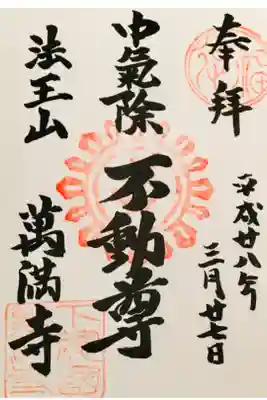 奉拝
平成廿八年
三月廿七日
中氣除
不動尊
法王山
萬満寺